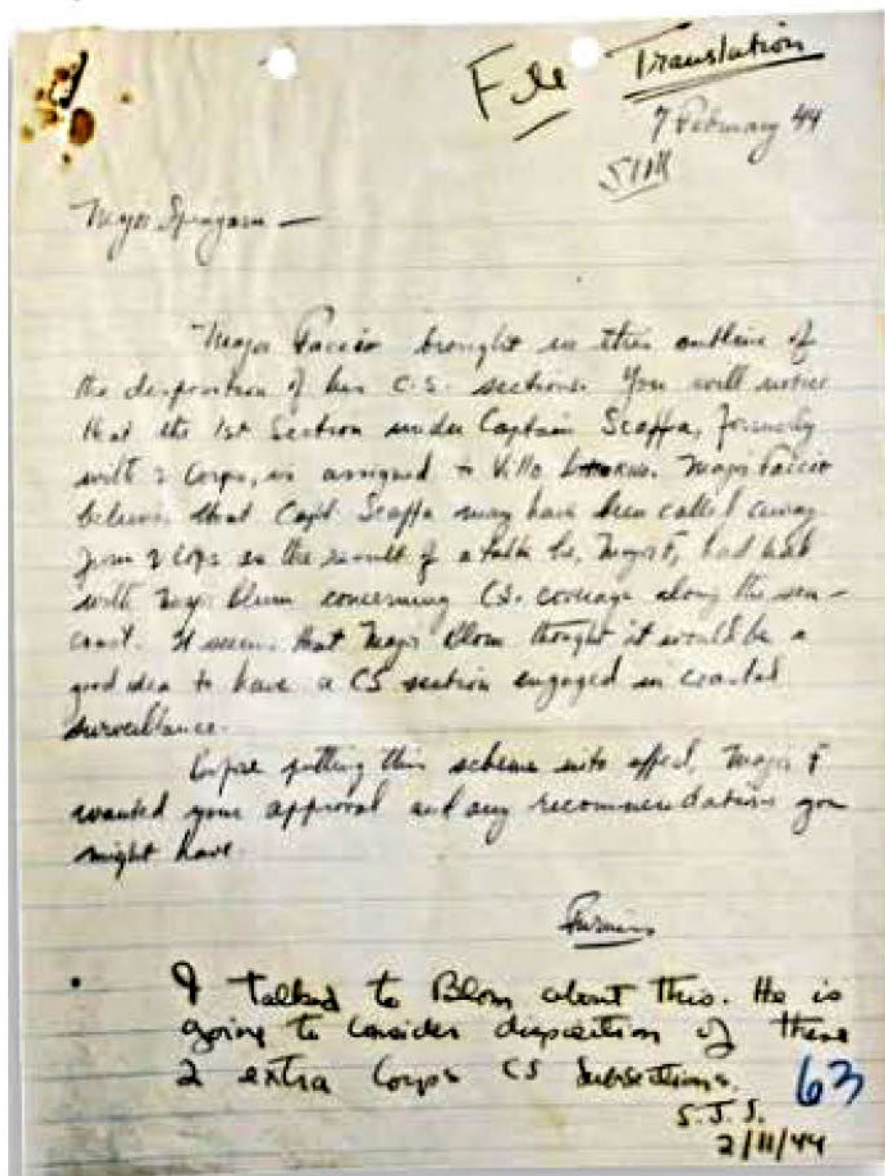 File Translation
7 February 44
SIM
Major Spingarn —
Major Faccio brought in this outline of
the disposition of his C.S. sections. You will notice
that the 1st Section under Captain Scaffa, formerly
with 2 Corps, is assigned to Villa. Major Faccio
believes that Capt. Scaffa may have been called away
from 2 Corps as the result of a talk he, Major F, had had
with Major Blom concerning C.S. coverage along the sea-
coast. It seems that Major Blom thought it would be a
good idea to have a CS section engaged in coastal
surveillance.
Before putting this scheme into effect, Major F
wanted your approval and any recommendations you
might have.
I talked to Blom about this. He is
going to consider disposition of these
2 extra Corps CS Subsections.
63
S.J.S.
2/11/44